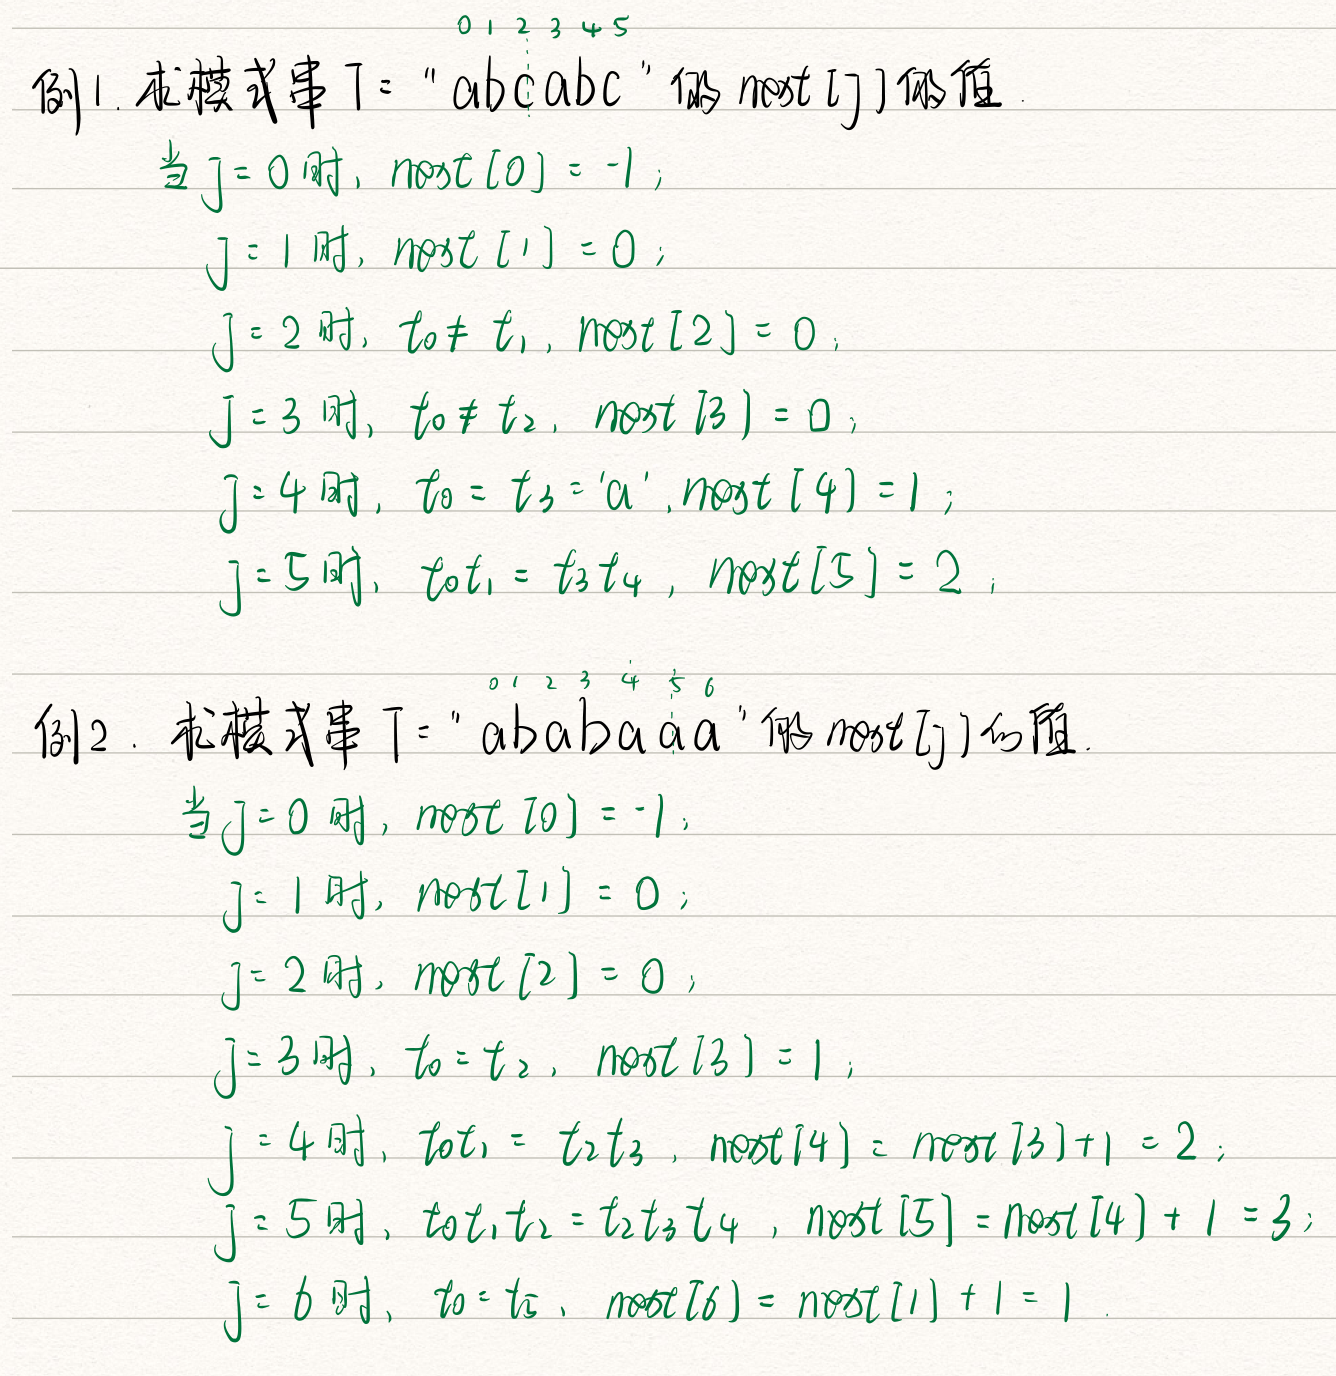 0 1 2 3 4 5
例1. 求模式串T="abcabc"的next[j]的值.
当j=0时, next[0]=-1;
j=1时, next[1]=0;
j=2时, t₀≠t₁, next[2]=0;
j=3时, t₀≠t₂, next[3]=0;
j=4时, t₀=t₃='a', next[4]=1;
j=5时, t₀t₁=t₃t₄, next[5]=2;
0 1 2 3 4 5 6
例2. 求模式串T="ababaaa"的next[j]的值.
当j=0时, next[0]=-1;
j=1时, next[1]=0;
j=2时, next[2]=0;
j=3时, t₀=t₂, next[3]=1;
j=4时, t₀t₁=t₂t₃, next[4]=next[3]+1=2;
j=5时, t₀t₁t₂=t₂t₃t₄, next[5]=next[4]+1=3;
j=6时, t₀=t₅, next[6]=next[1]+1=1.